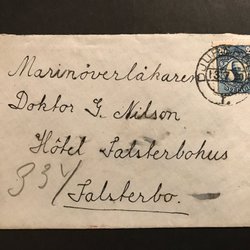 Marinöverläkaren
Doktor G. Nilson
Hôtel Falsterbohus
Falsterbo.